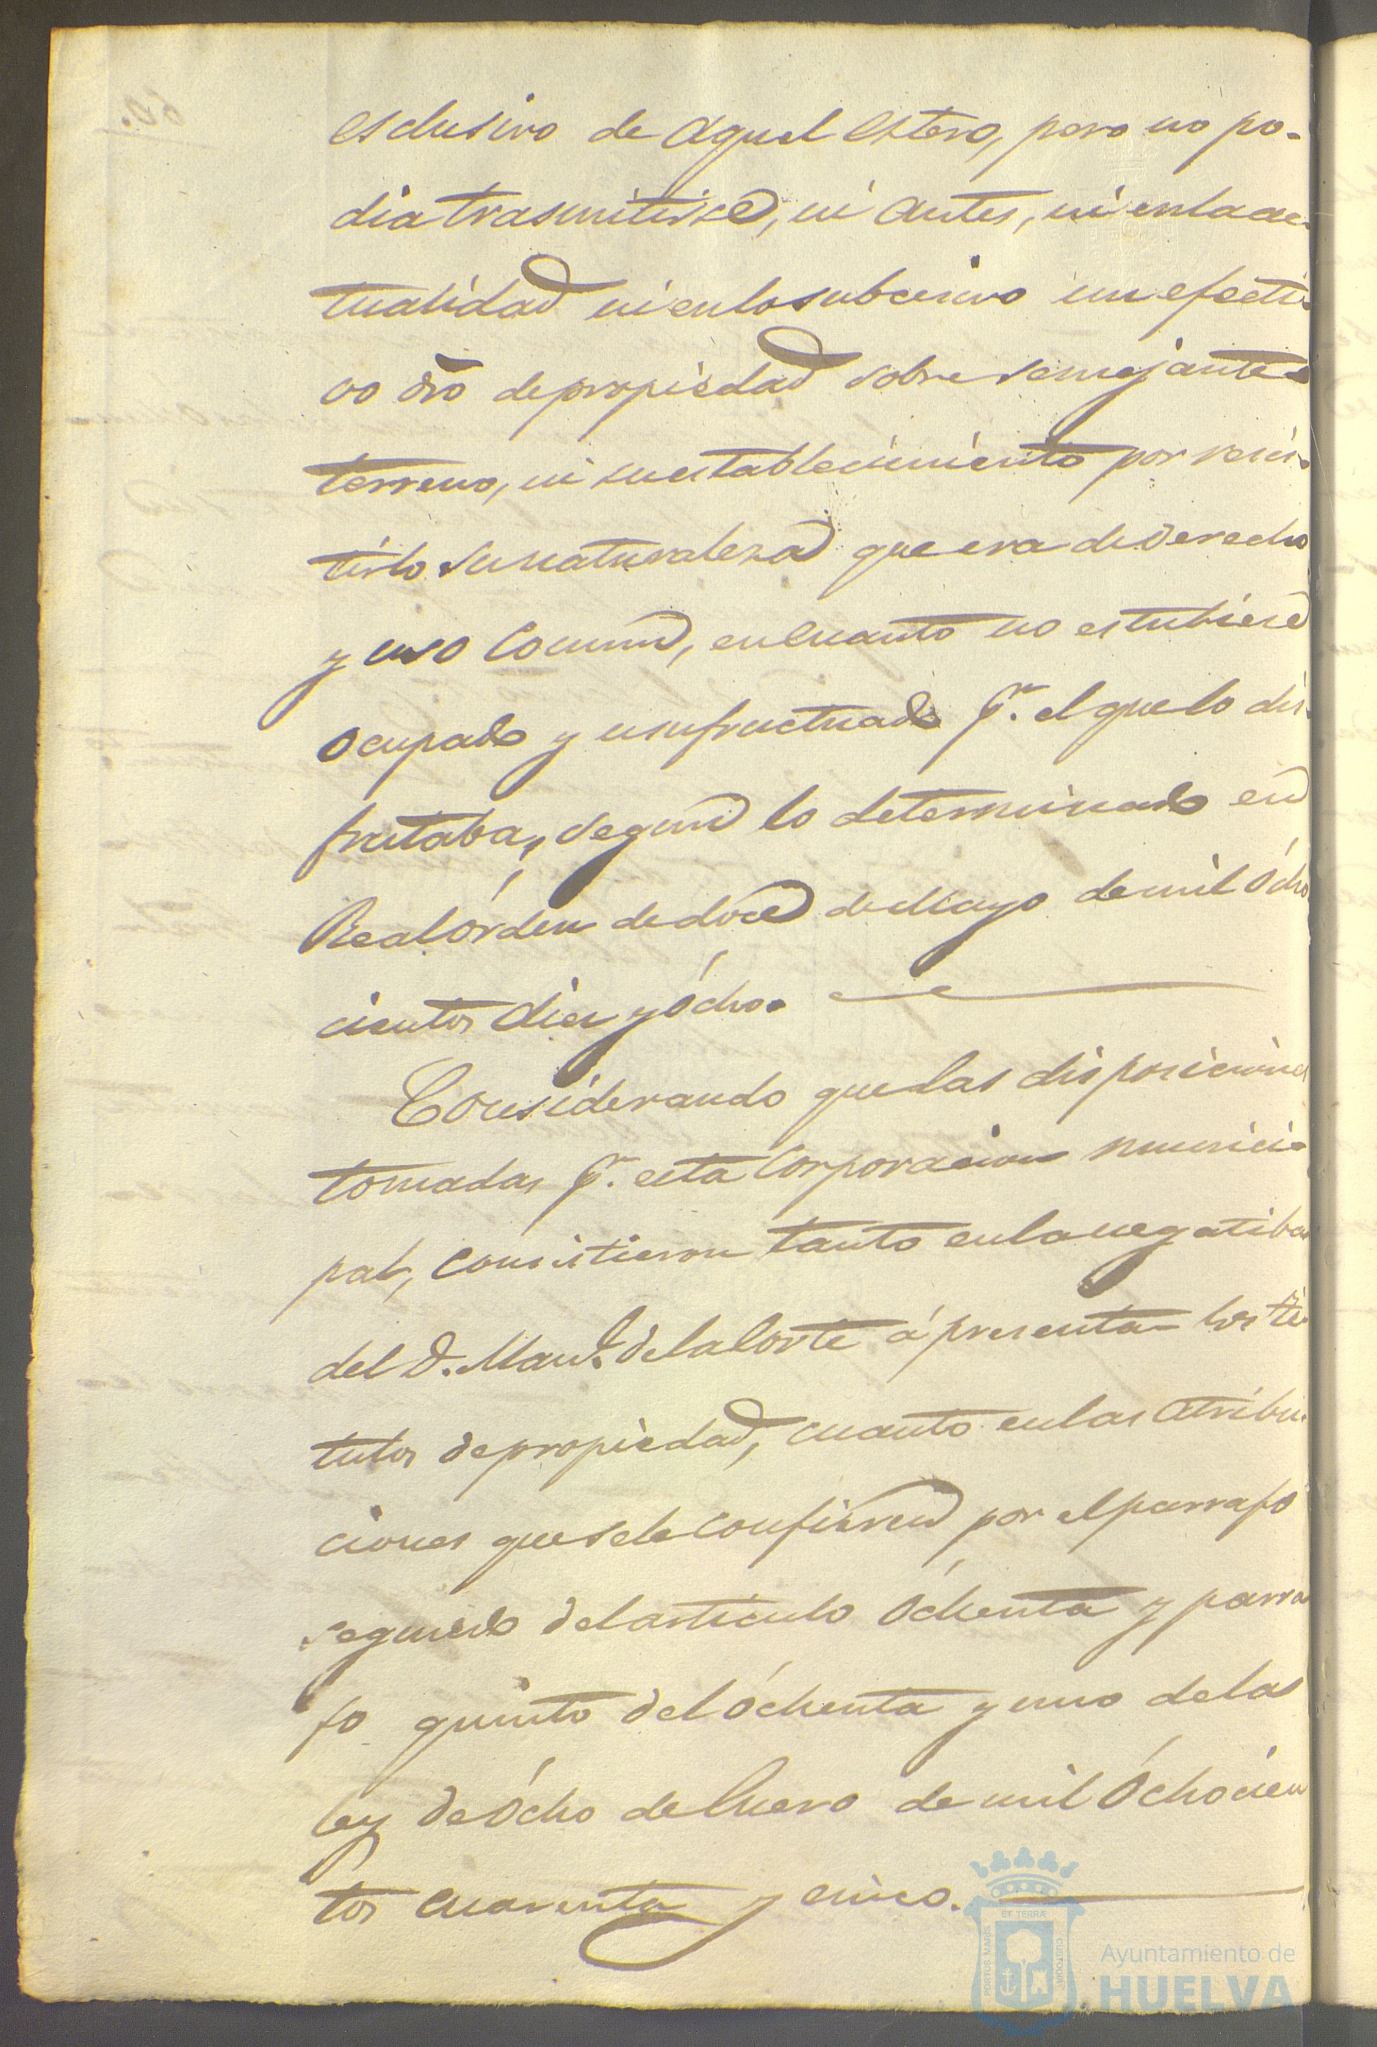 esclusivo de aquel estero, pero no po-
dia trasmitirse, ni antes, ni en la ac-
tualidad ni en lo subcesivo un efecti-
vo dro de propiedad sobre semejante
terreno, ni su establecimiento por resis-
tirlo su naturaleza que era de derecho
y uso comun, en cuanto no estubiese
ocupado y usufructuado pr. el que lo dis-
frutaba, segun lo determinado en
Real órden de doce de Mayo de mil ócho
cientos diez y ócho.
Considerando que las disposiciones
tomadas pr. esta Corporacion munici-
pal, consistieron tanto en la negatiba
del D. Manl. de la Corte á presentar los tí-
tulos de propiedad, cuanto en las atribu
ciones que se le confieren por el parrafo
segundo del articulo óchenta y parra
fo quinto del óchenta y uno de la
ley de ócho de Enero de mil óchocien
tos cuarenta y cinco.
PORTUS MARIS
ET TERRÆ
CUSTODIA
Ayuntamiento de
HUELVA